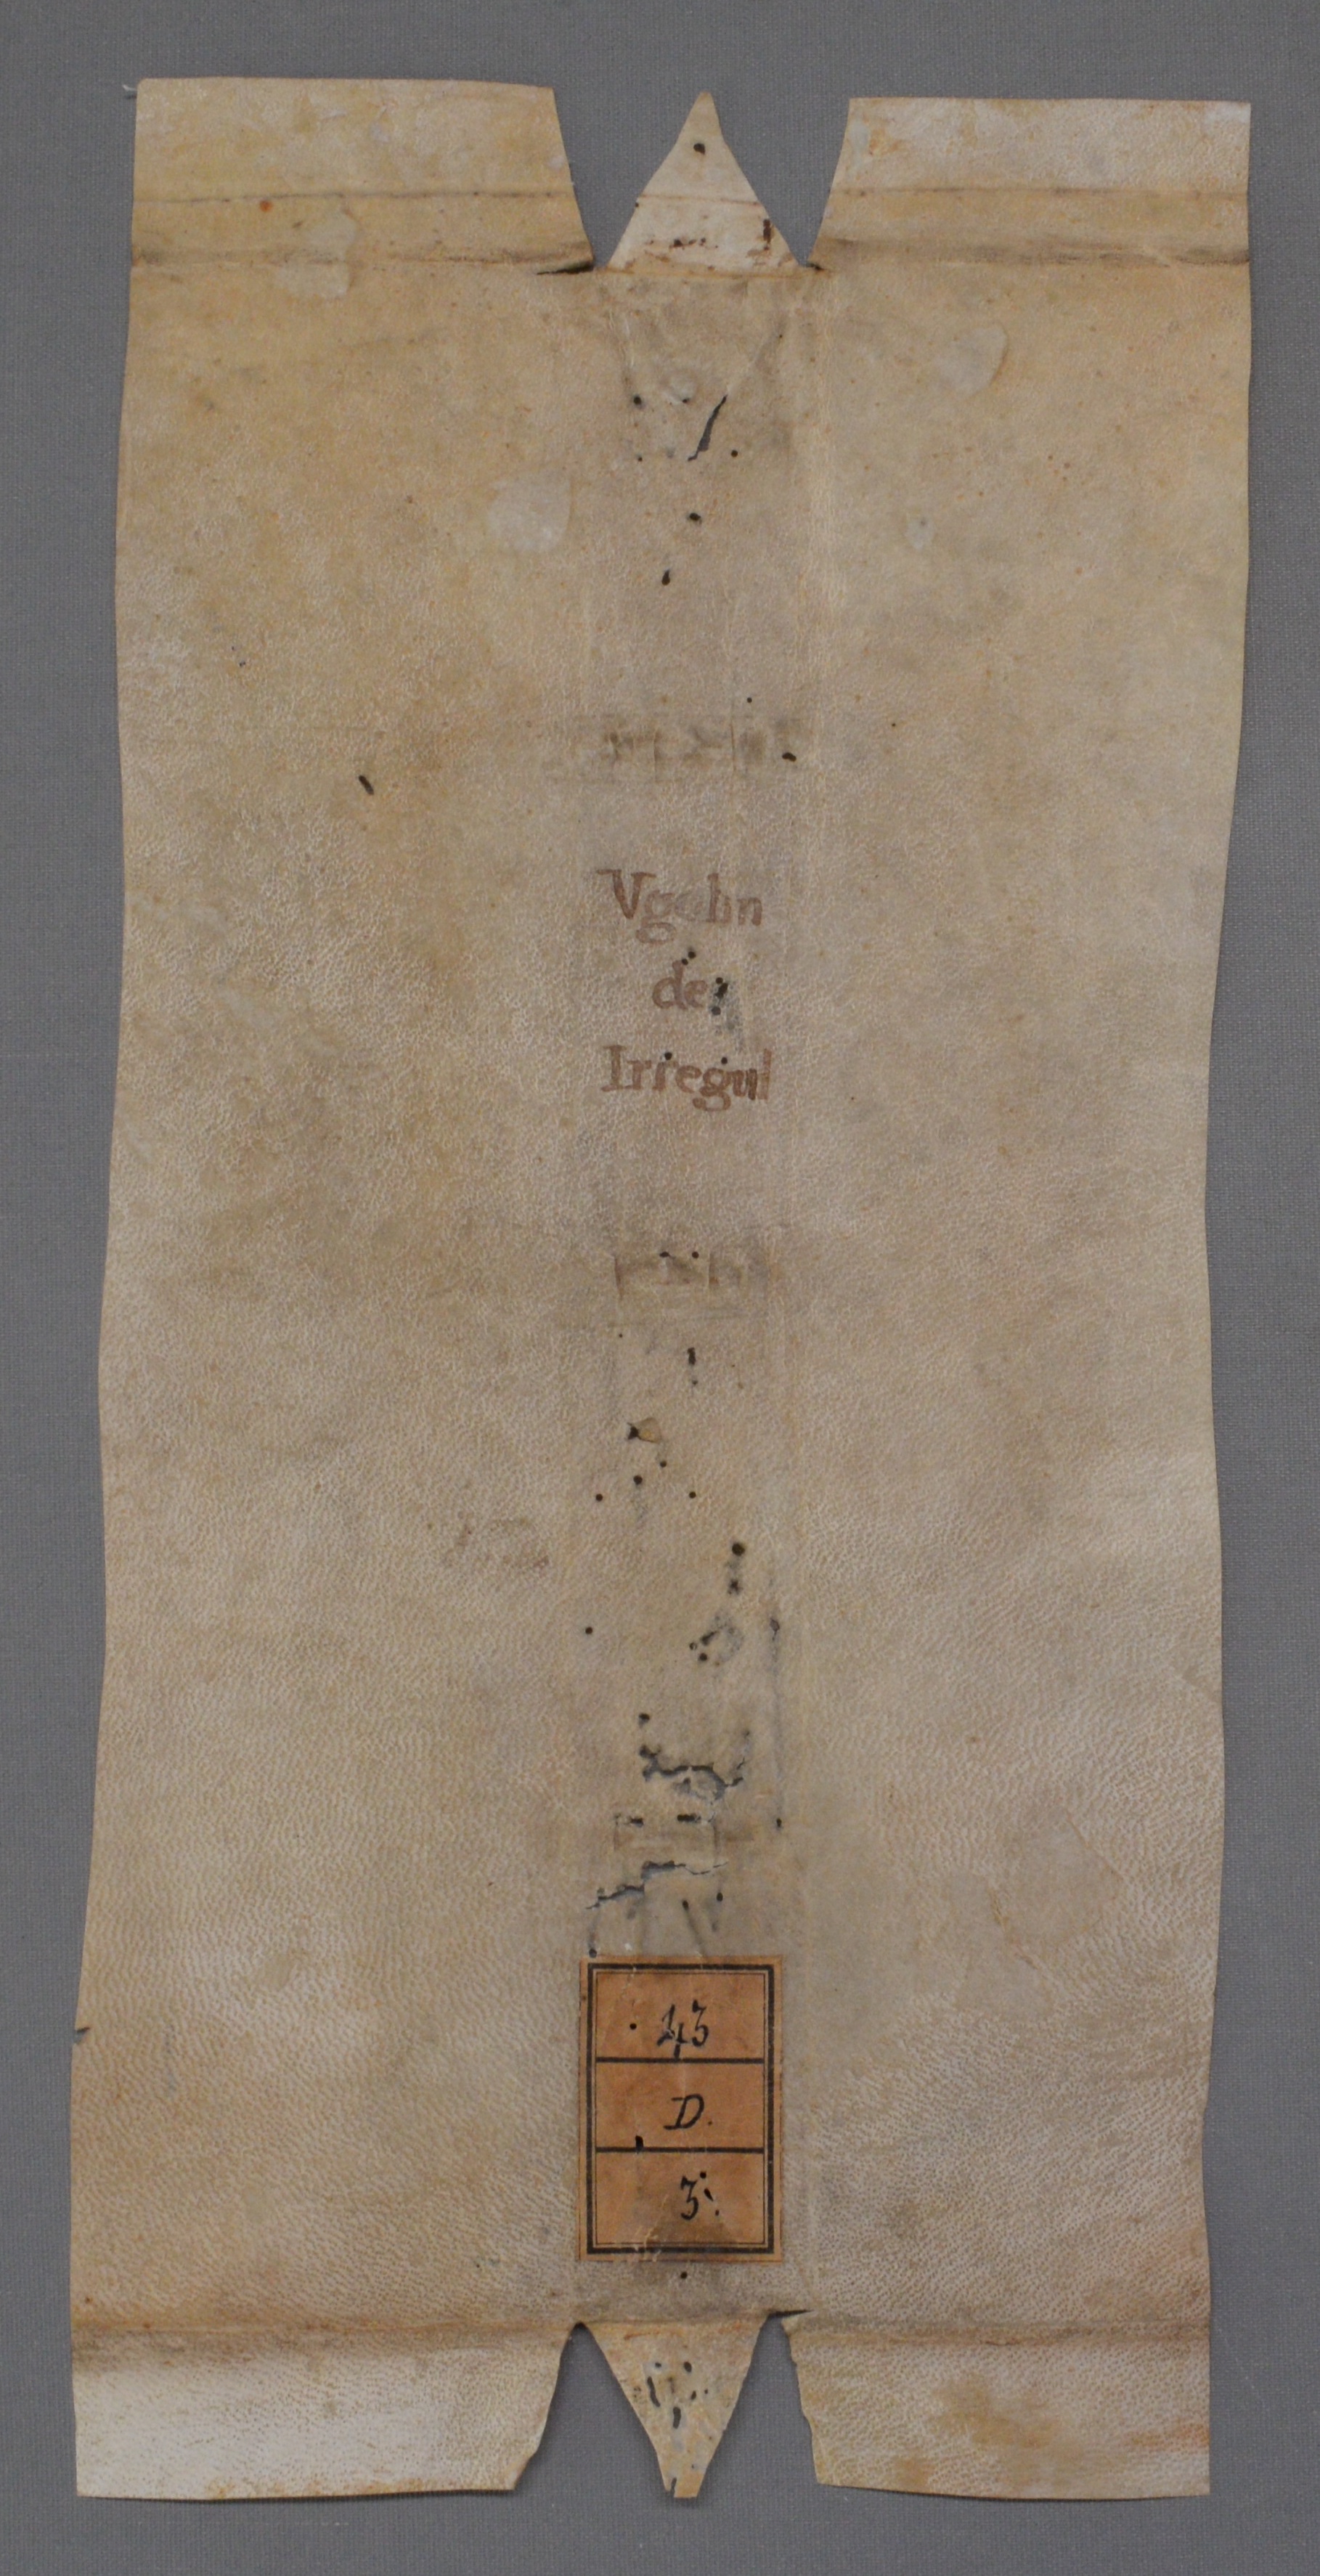 Vgolin
de
Irregul
43
D.
3.